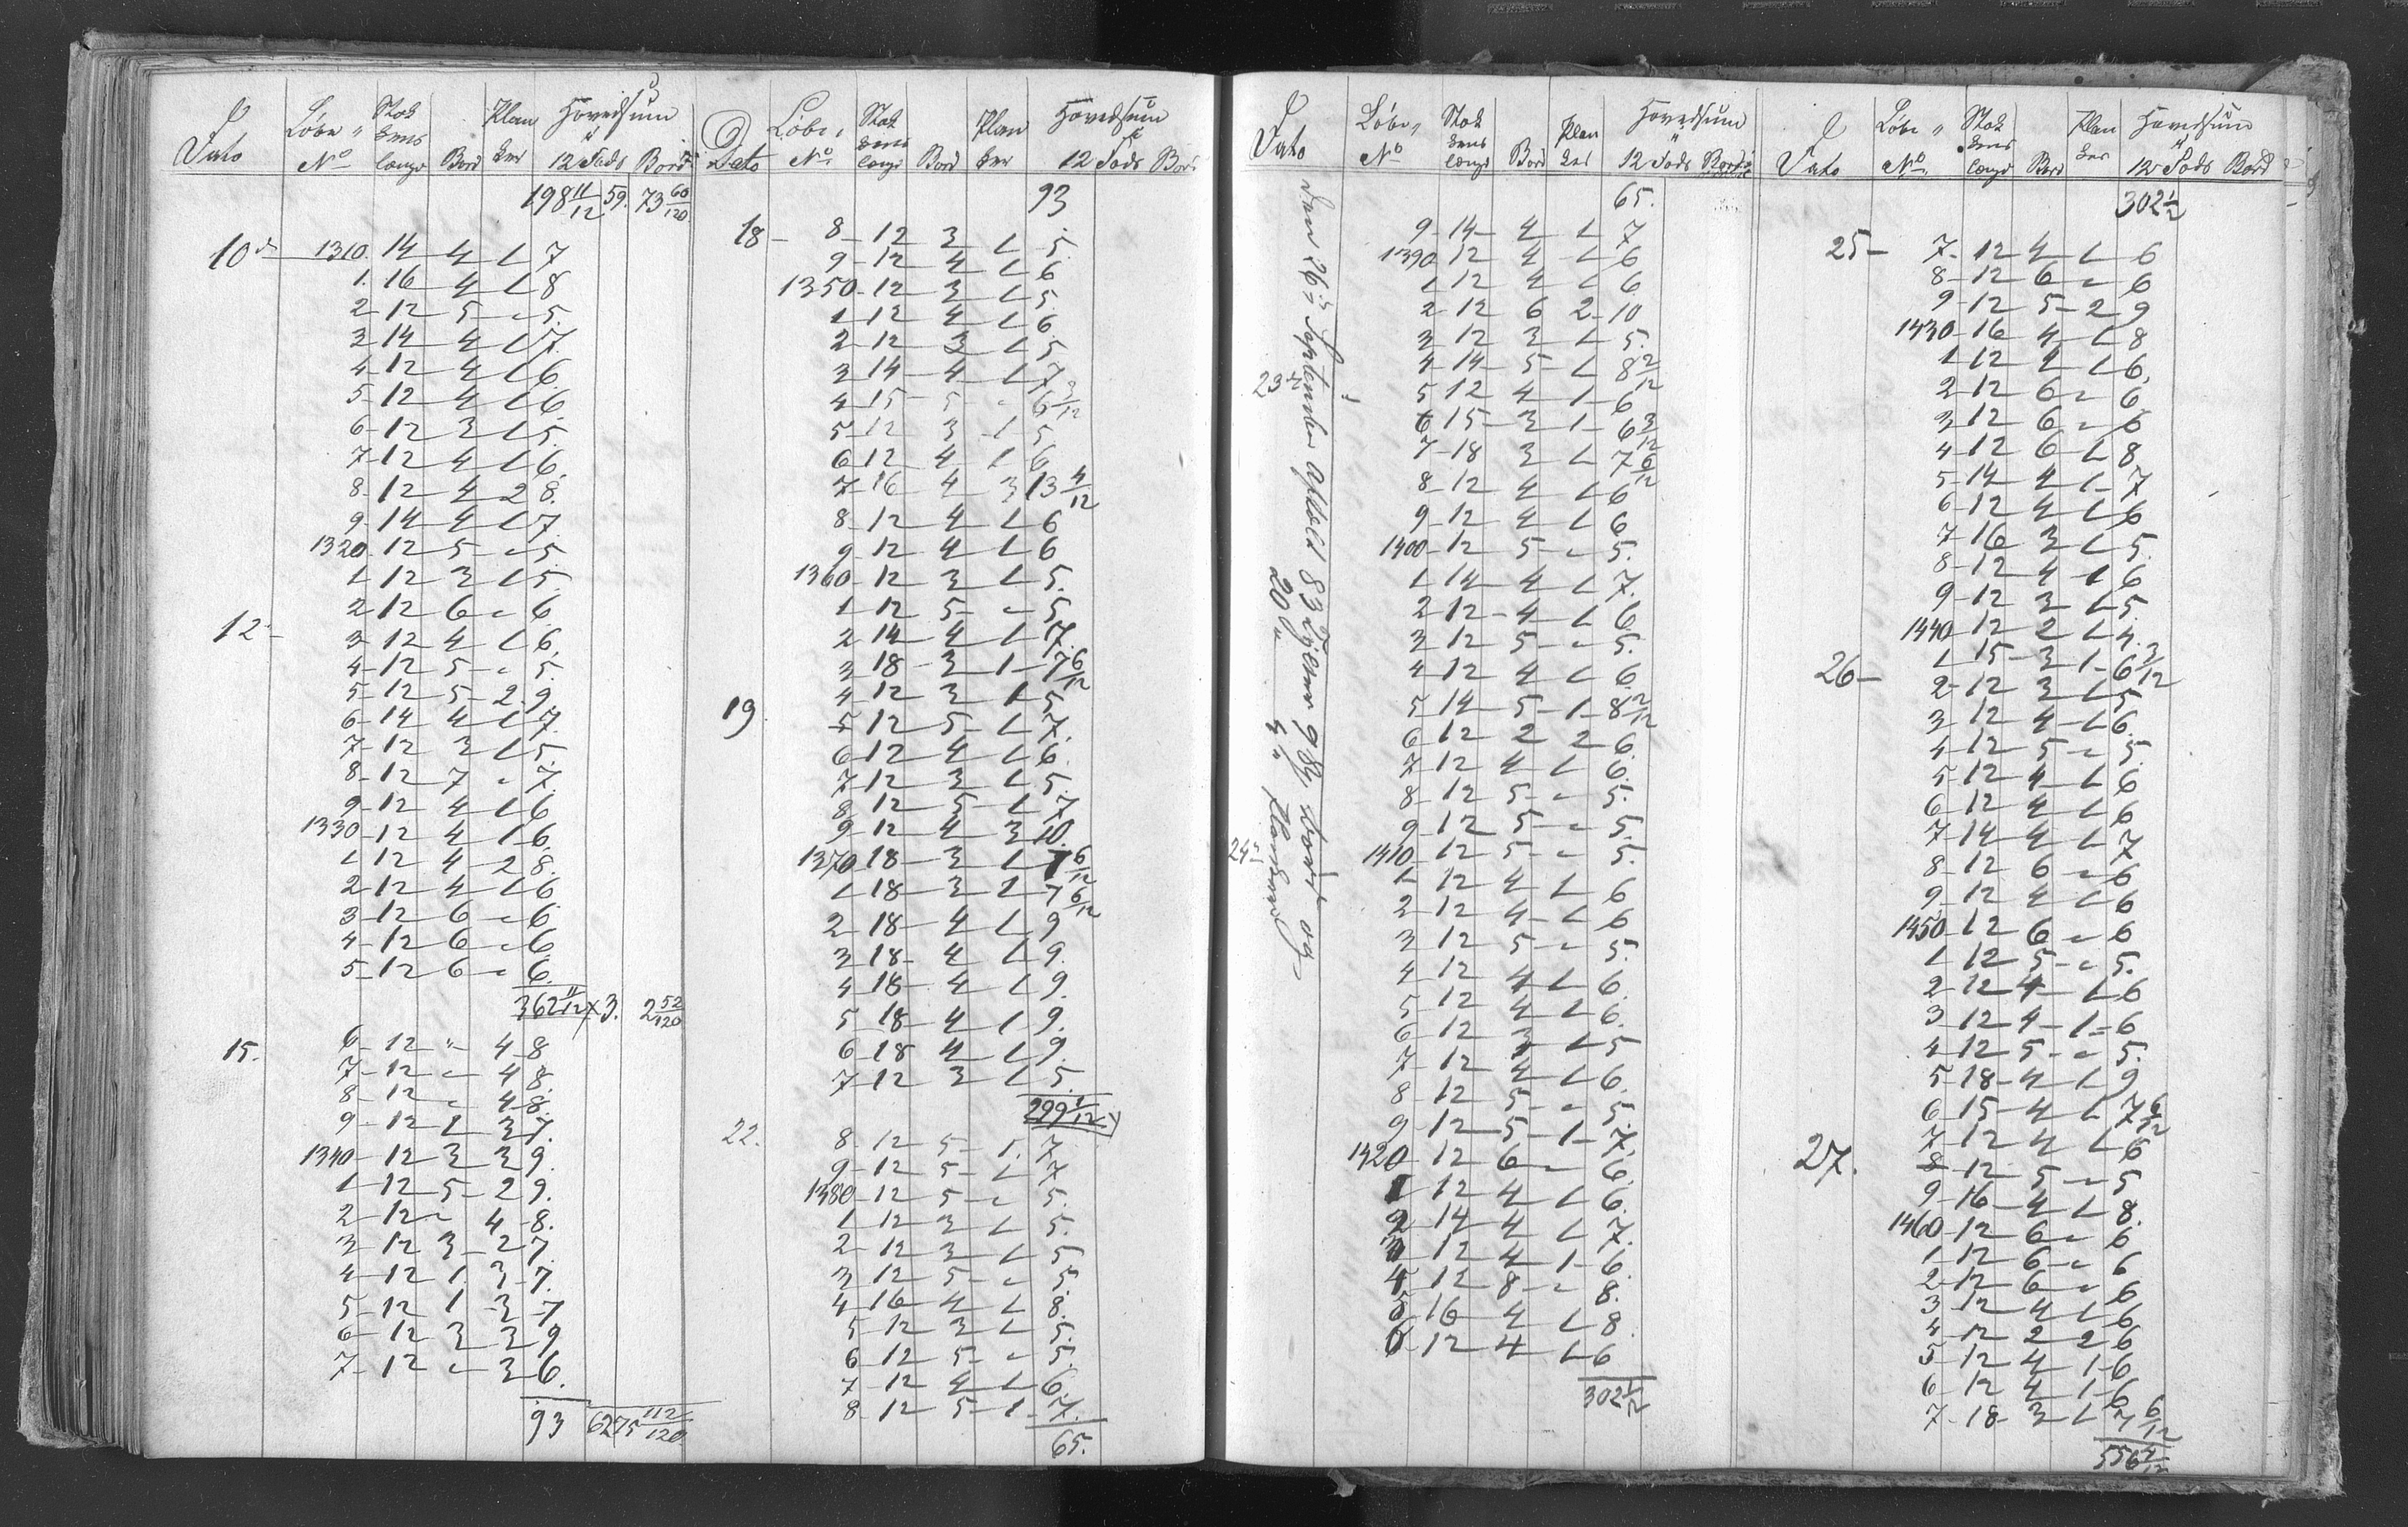 Dato Løbe No Stokkens længd Bord Planker Hovedsum 12 Fods Bord
198 11/12 59. 73 60/120
10de 1310. 14 4 1 7
1. 16 4 1 8
2 12 5 " 5.
3 14 4 1 7.
4 12 4 1 6.
5 12 4 1 6.
6 12 3 1 5.
7 12 4 1 6.
8 12 4 2 8.
9 14 4 1 7.
1320 12 5 " 5.
1 12 3 1 5.
2 12 6 " 6.
12 3 12 4 1 6.
4 12 5 " 5.
5 12 5 2 9.
6 14 4 1 7.
7 12 3 1 5.
8 12 7 " 7.
9 12 4 1 6
1330 12 4 1 6.
1 12 4 2 8.
2 12 4 1 6
3 12 6 " 6.
4 12 6 " 6
5 12 6 " 6.
362 11/12 x 3. 2 52/120
15. 6 12 " 4 8
7 12 " 4 8.
8 12 " 4 8.
9 12 1 3 7.
1340 12 3 3 9.
1 12 5 2 9.
2 12 " 4 8.
3 12 3 2 7.
4 12 1 3 7.
5 12 1 3 7
6 12 3 3 9
7 12 " 3 6.
93 6275 112/120
Dato Løbe No Stokkens længd Bord Planker Hovedsum 12 Fods Bord
93
18 8 12 3 1 5.
9 12 4 1 6
1350 12 3 1 5.
1 12 4 1 6.
2 12 3 1 5.
3 14 4 1 7.
4 15 5 " 6 3/12
5 12 3 1 5
6 12 4 1 6
7 16 4 3 13 4/12
8 12 4 1 6
9 12 4 1 6
1360 12 3 1 5.
1 12 5 " 5.
2 14 4 1 7.
3 18 3 1 7 6/12
4 12 3 1 5
19 5 12 5 1 7.
6 12 4 1 6.
7 12 3 1 5.
8 12 5 1 7
9 12 4 3 10.
1370 18 3 1 7 6/12
1 18 3 1 7 6/12
2 18 4 1 9
3 18 4 1 9.
4 18 4 1 9.
5 18 4 1 9.
6 18 4 1 9.
7 12 3 1 5.
299 1/12
22. 8 12 5 1. 7
9 12 5 1 7
1380 12 5 " 5.
1 12 3 1 5.
2 12 3 1 5
3 12 5 " 5.
4 16 4 1 8.
5 12 3 1 5.
6 12 5 " 5.
7 12 4 1 6.
8 12 5 1 7.
65.
Dato Løbe No Stokkens længd Bord Planker Hovedsum 12 Fods Bord
65.
9 14 4 1 7
1390 12 4 1 6
1 12 4 1 6
2 12 6 2 10
3 12 3 1 5.
4 14 5 1 8 2/12
23de 5 12 4 1 6
6 15 3 1 6 3/12
7 18 3 1 7 6/12
8 12 4 1 6
9 12 4 1 6
1400 12 5 " 5.
1 14 4 1 7.
2 12 4 1 6
3 12 5 " 5.
4 12 4 1 6.
5 14 5 1 8 2/12
6 12 2 2 6.
7 12 4 1 6.
8 12 5 " 5.
9 12 5 " 5.
24de 1410 12 5 " 5.
1 12 4 1 6
2 12 4 1 6
3 12 5 " 5.
4 12 4 1 6.
5 12 4 1 6.
6 12 3 1 5
7 12 4 1 6.
8 12 5 " 5.
9 12 5 1 7.
1420 12 6 " 6.
1 12 4 1 6.
2 14 4 1 7.
3 12 4 1 6.
4 12 8 " 8.
5 16 4 1 8.
6 12 4 1 6
302 1/12
Den 26de September 83 Tylter 9 84 Bord og
20 " 4 " Planker
Dato Løbe No Stokkens længd Bord Planker Hovedsum 12 Fods Bord
302 1/12
25 7 12 4 1 6
8 12 6 " 6
9 12 5 2 9
1430 16 4 1 8
1 12 4 1 6.
2 12 6 " 6
3 12 6 " 6
4 12 6 1 8
5 14 4 1 7
6 12 4 1 6
7 16 3 1 5.
8 12 4 1 6
9 12 3 1 5.
1440 12 2 1 4.
26 1 15 3 1 6 3/12
2 12 3 1 5
3 12 4 1 6.
4 12 5 " 5.
5 12 4 1 6
6 12 4 1 6
7 14 4 1 7
8 12 6 " 6
9 12 4 1 6
1450 12 6 " 6
1 12 5 " 5.
2 12 4 1 6
3 12 4 1 6
4 12 5 " 5.
5 18 4 1 9
6 15 4 1 7 6/12
7 12 4 1 6
27. 8 12 5 " 5
9 16 4 1 8.
1460 12 6 " 6
1 12 6 " 6
2 12 6 " 6
3 12 4 1 6
4 12 2 2 6
5 12 4 1 6
6 12 4 1 6
7 18 3 1 7 6/12
556 4/12